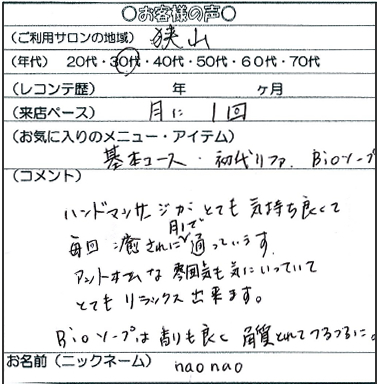 ○お客様の声○
(ご利用サロンの地域) 狭山
(年代) 20代・30代・40代・50代・60代・70代
(レコンテ歴) 年 ヶ月
(来店ペース) 月に1回
(お気に入りのメニュー・アイテム)
基本コース・初代リファ、Bioソープ
(コメント)
ハンドマッサージがとても気持ち良くて
毎回癒されに月1で通っています
アットホームな雰囲気も気にいっていて
とてもリラックス出来ます。
Bioソープは香りも良く角質とれてつるつるに。
お名前(ニックネーム) naonao